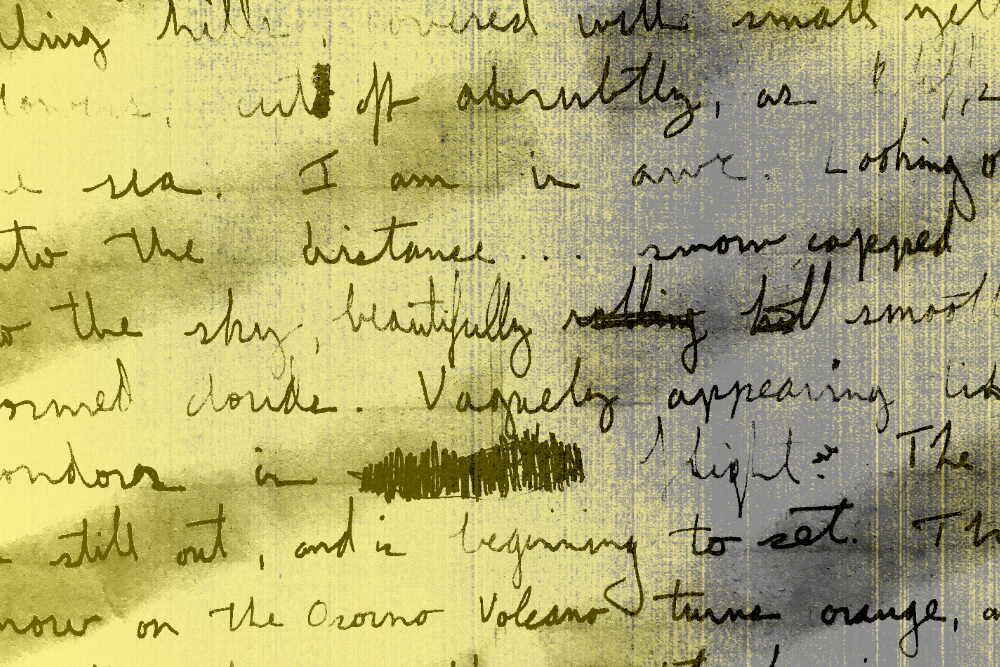 lling hills covered with small yell
cut off abruptly, as
sea. I am in awe. Looking o
to the distance.... snow capped
to the sky, beautifully rolling but smooth
ormed clouds. Vaguely appearing lik
ondors in flight. The
still out, and is beginning to set. Th
now on the Osorno Volcano turns orange, a